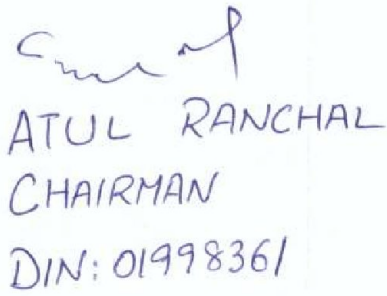 ATUL RANCHAL
CHAIRMAN
DIN: 01998361